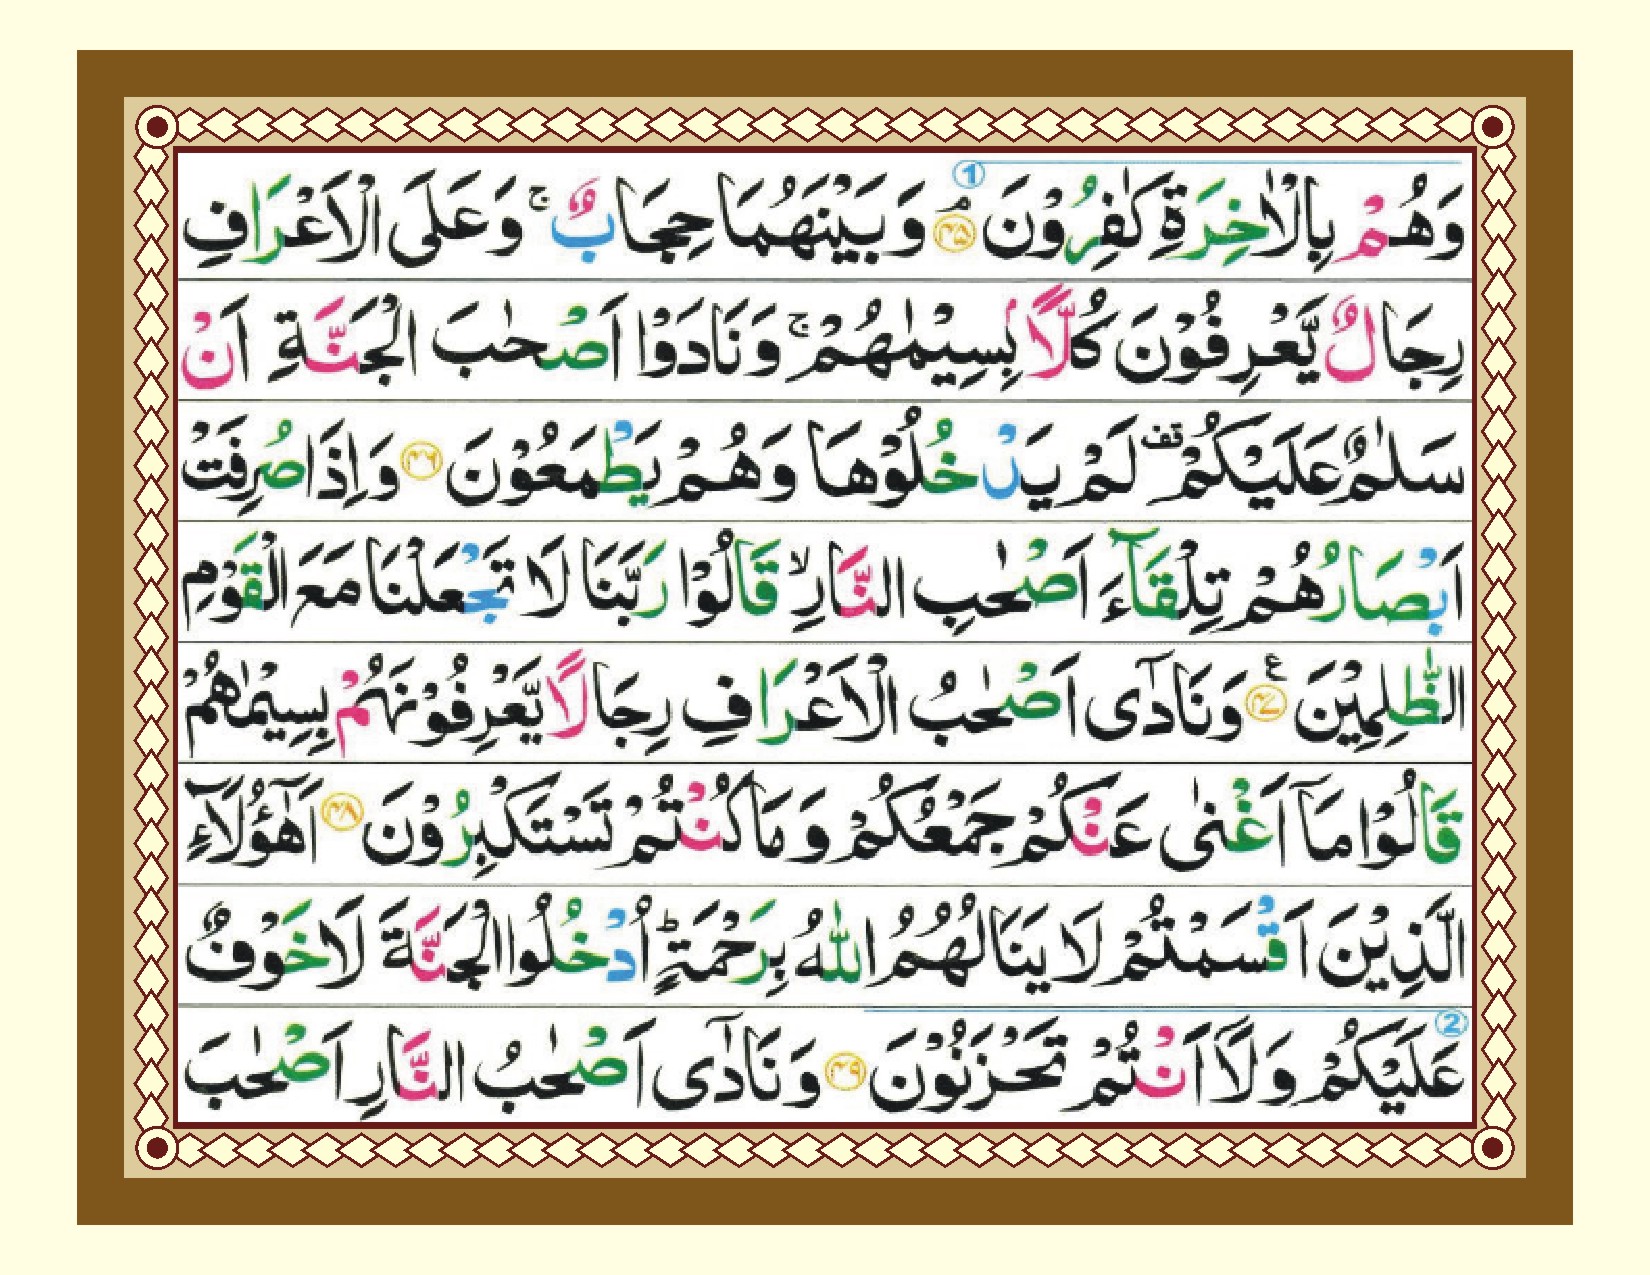 وَهُمْ بِالْاٰخِرَةِ كٰفِرُوْنَ ۘ ﴿۴۵﴾ ① وَبَيْنَهُمَا حِجَابٌ ۚ وَعَلَى الْاَعْرَافِ
رِجَالٌ يَّعْرِفُوْنَ كُلًّاۢ بِسِيْمٰىهُمْ ۚ وَنَادَوْا اَصْحٰبَ الْجَنَّةِ اَنْ
سَلٰمٌ عَلَيْكُمْ ۫ لَمْ يَدْخُلُوْهَا وَهُمْ يَطْمَعُوْنَ ﴿۴۶﴾ وَاِذَا صُرِفَتْ
اَبْصَارُهُمْ تِلْقَآءَ اَصْحٰبِ النَّارِ ۙ قَالُوْا رَبَّنَا لَا تَجْعَلْنَا مَعَ الْقَوْمِ
الظّٰلِمِيْنَ ﴿۴۷﴾ ع وَنَادٰٓى اَصْحٰبُ الْاَعْرَافِ رِجَالًا يَّعْرِفُوْنَهُمْ بِسِيْمٰىهُمْ
قَالُوْا مَآ اَغْنٰى عَنْكُمْ جَمْعُكُمْ وَمَا كُنْتُمْ تَسْتَكْبِرُوْنَ ﴿۴۸﴾ اَهٰٓؤُلَآءِ
الَّذِيْنَ اَقْسَمْتُمْ لَا يَنَالُهُمُ اللّٰهُ بِرَحْمَةٍ ؕ اُدْخُلُوا الْجَنَّةَ لَا خَوْفٌ
② عَلَيْكُمْ وَلَآ اَنْتُمْ تَحْزَنُوْنَ ﴿۴۹﴾ وَنَادٰٓى اَصْحٰبُ النَّارِ اَصْحٰبَ